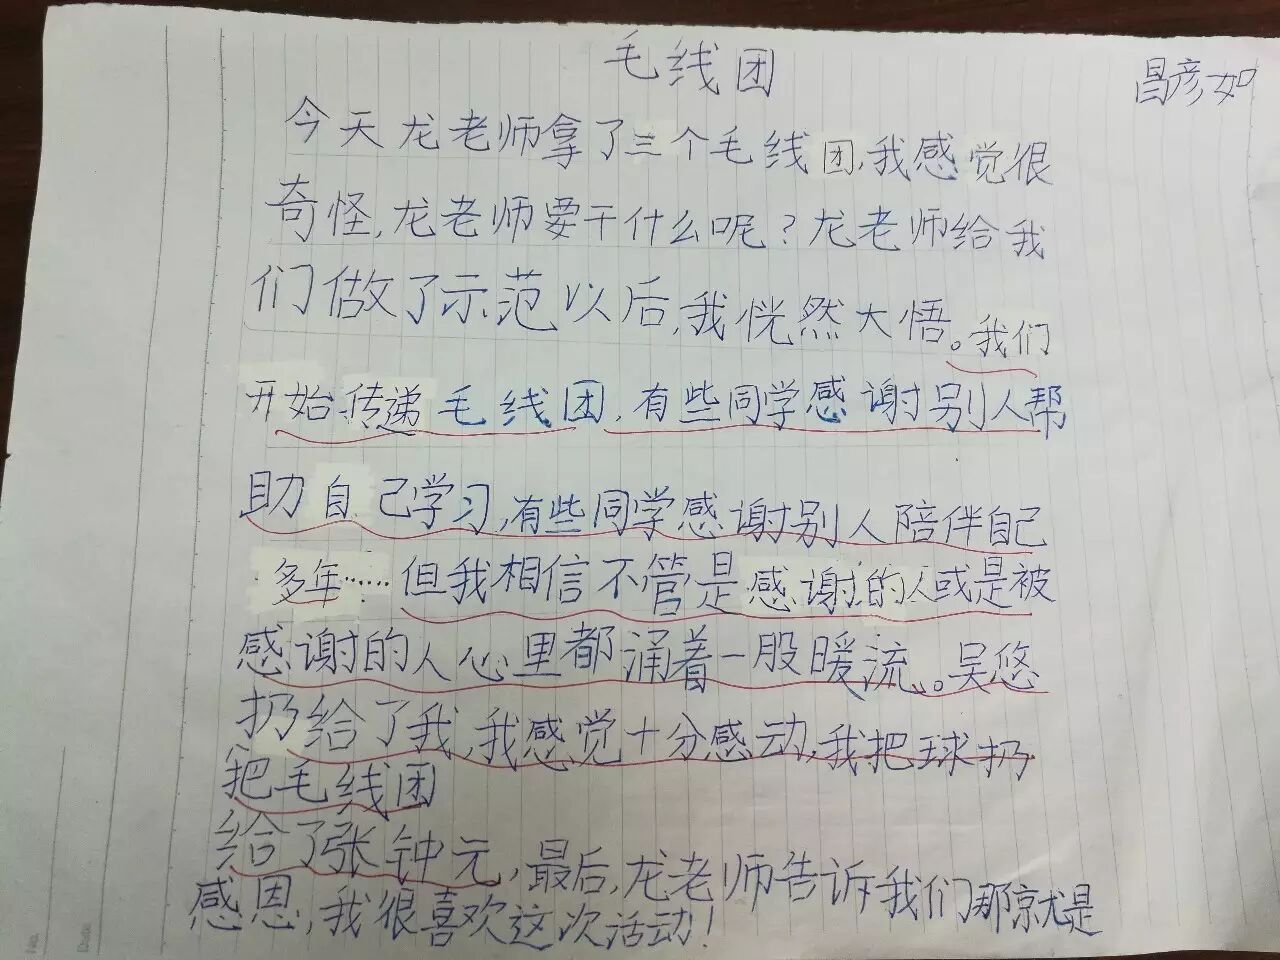 毛线团
昌彦如
今天龙老师拿了三个毛线团,我感觉很
奇怪,龙老师要干什么呢?龙老师给我
们做了示范以后,我恍然大悟。我们
开始传递毛线团,有些同学感谢别人帮
助自己学习,有些同学感谢别人陪伴自己
多年……但我相信不管是感谢的人或是被
感谢的人心里都涌着一股暖流。吴悠
扔给了我,我感觉十分感动,我把球扔
把毛线团
给了张钟元,最后,龙老师告诉我们那就是
感恩,我很喜欢这次活动!
No.
Date